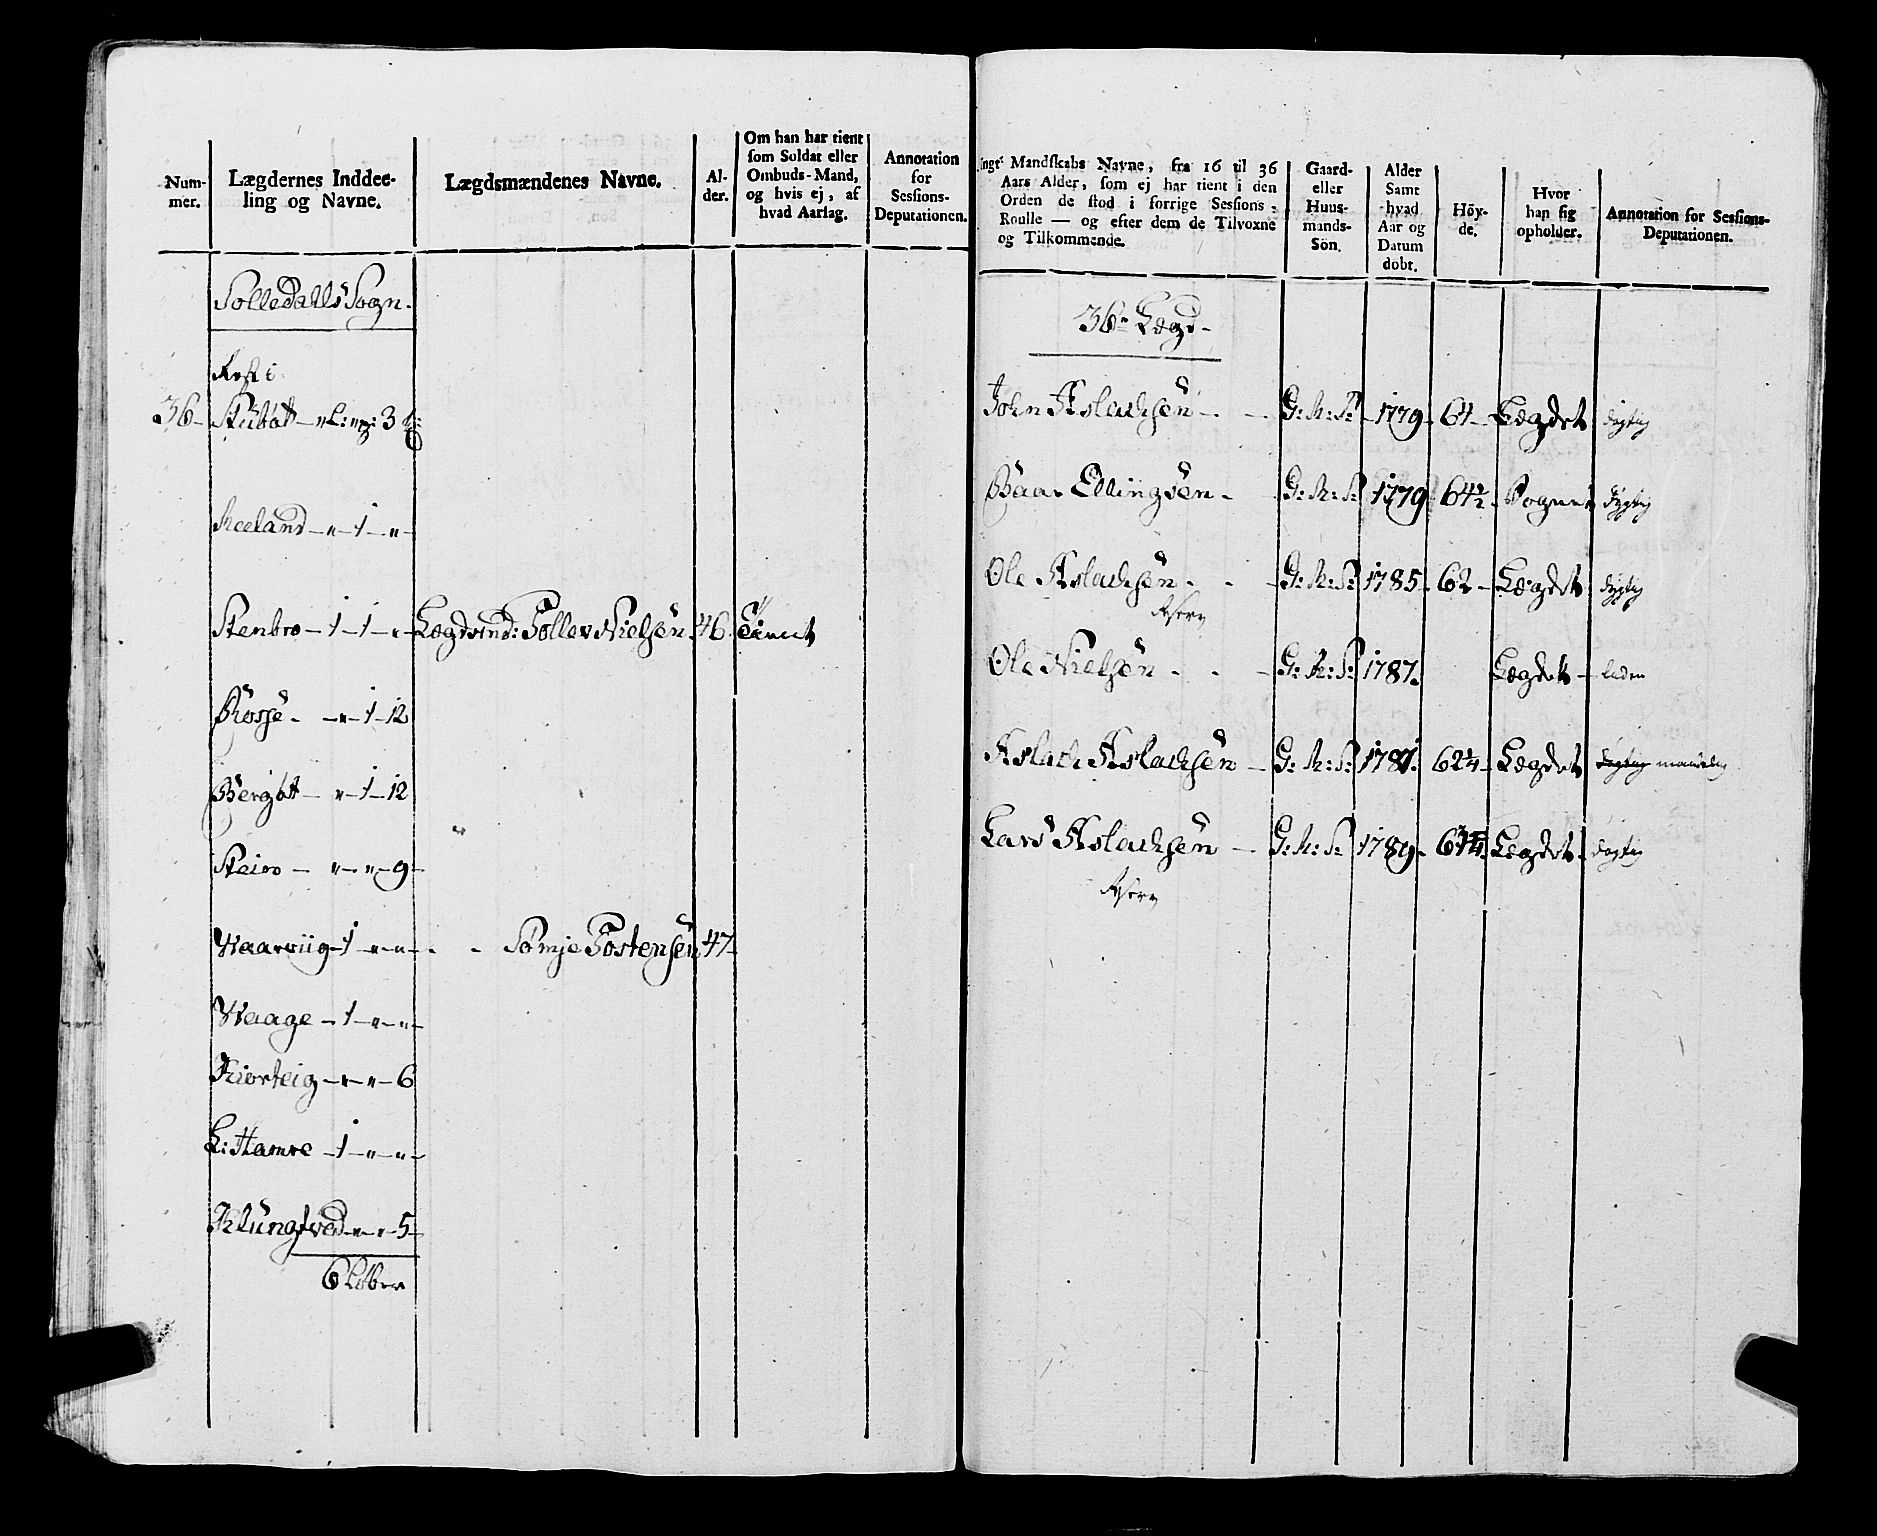 Num-
mer.
Lægdernes Inddee-
ling og Navne.
Lægdsmændenes Navne.
Al-
der.
Om han har tient
som Soldat eller
Ombuds-Mand,
og hvis ej, af
hvad Aarsag.
Annotation
for
Sessions-
Deputationen.
Solledalls Sogn.
36 - Stubøt - " L: " 3
Aaeland - " - 1 - " -
Stenbro - 1 - 1 - " - Lægdsmd: Tollev Nielsen 46 Tient
Rosse - " - 1 - 12
Bergøtt - " - 1 - 12
Steiro - " - " - 9 -
Waarviig - 1 - " - " - - Sømje Tostensen 47 -
Waage - 1 - " - " -
Kiorteig - " - " - 6
L: Hamre - 1 - " - " -
Klungtved - " - " - 5 -
6 Løber
ungt Mandskabs Navne, fra 16 til 36
Aars Alder, som ej har tient i den
Orden de stod i forrige Sessions-
Roulle — og efter dem de Tilvoxne
og Tilkommende.
Gaard-
eller
Huus-
mands-
Sön.
Alder
Samt
hvad
Aar og
Datum
döbt.
Höy-
de.
Hvor
han sig
opholder.
Annotation for Sessions-
Deputationen.
36te Lægd -
John Aslachsen - - G: M: S: - 1779 - 64 - Lægdet dygtig
Baar Ellingsen - G: M: S: 1779 64½ - Sognet dygtig
Ole Aslachsen - - G: M: S: 1785. 62 - Lægdet dygtig
Ole Nielsen - - G: M: S: 1787. Lægdet - liden
Aslach Aslachsen - G: M: S: 1787. 62¼ - Lægdet dygtig
Lars Aslachsen - G: M: S: 1789 - Lægdet - dygtig